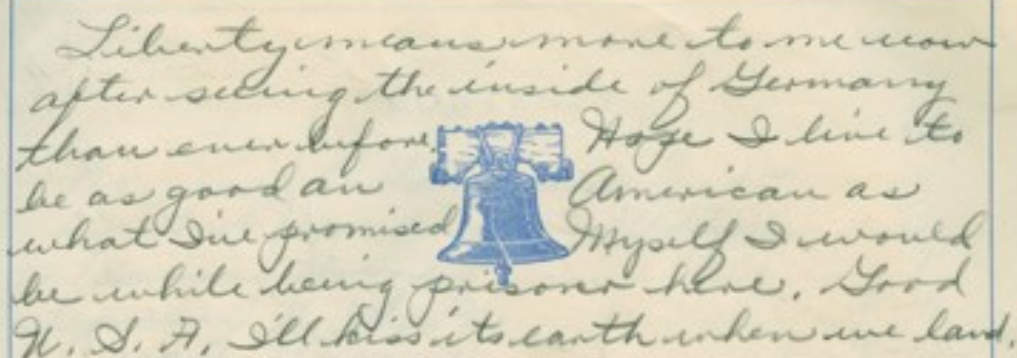 Liberty means more to me now
after seeing the inside of Germany
than ever before. Hope I live to
be as good an American as
what I've promised Myself I would
be while being prisoner here. Good
U. S. A, I'll kiss its earth when we land.